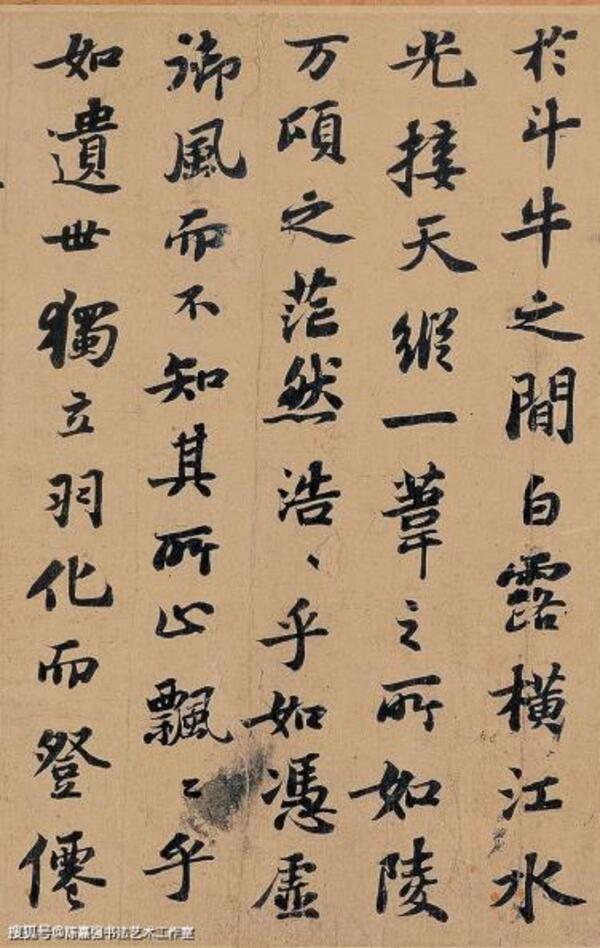 於斗牛之間白露橫江水
光接天縱一葦之所如陵
万頃之茫然浩〻乎如馮虛
御風而不知其所止飄〻乎
如遺世獨立羽化而登僊
搜狐号@陈嘉强书法艺术工作室